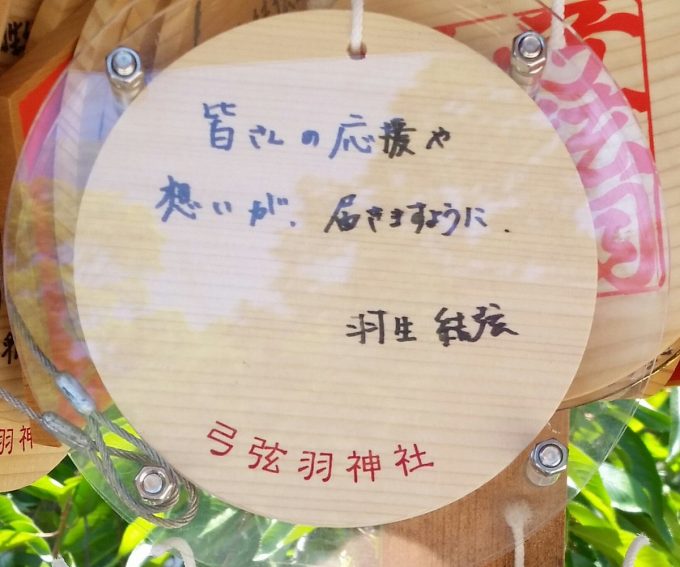 皆さんの応援や
想いが、届きますように.
羽生結弦
弓弦羽神社